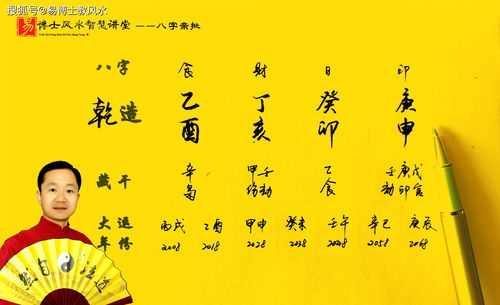 搜狐号@易博士救风水
易 博士风水智慧讲堂 ——八字亲批
Yi Bo Shi Feng Shui Zhi Hui Jiang Tang
八字 食 财 日 印
乾造 乙 丁 癸 庚
酉 亥 卯 申
藏干 辛 甲壬 乙 壬庚戊
枭 伤劫 食 劫印官
大运 丙戌 乙酉 甲申 癸未 壬午 辛巳 庚辰
年份 2008 2018 2028 2038 2048 2058 2068
然自法道